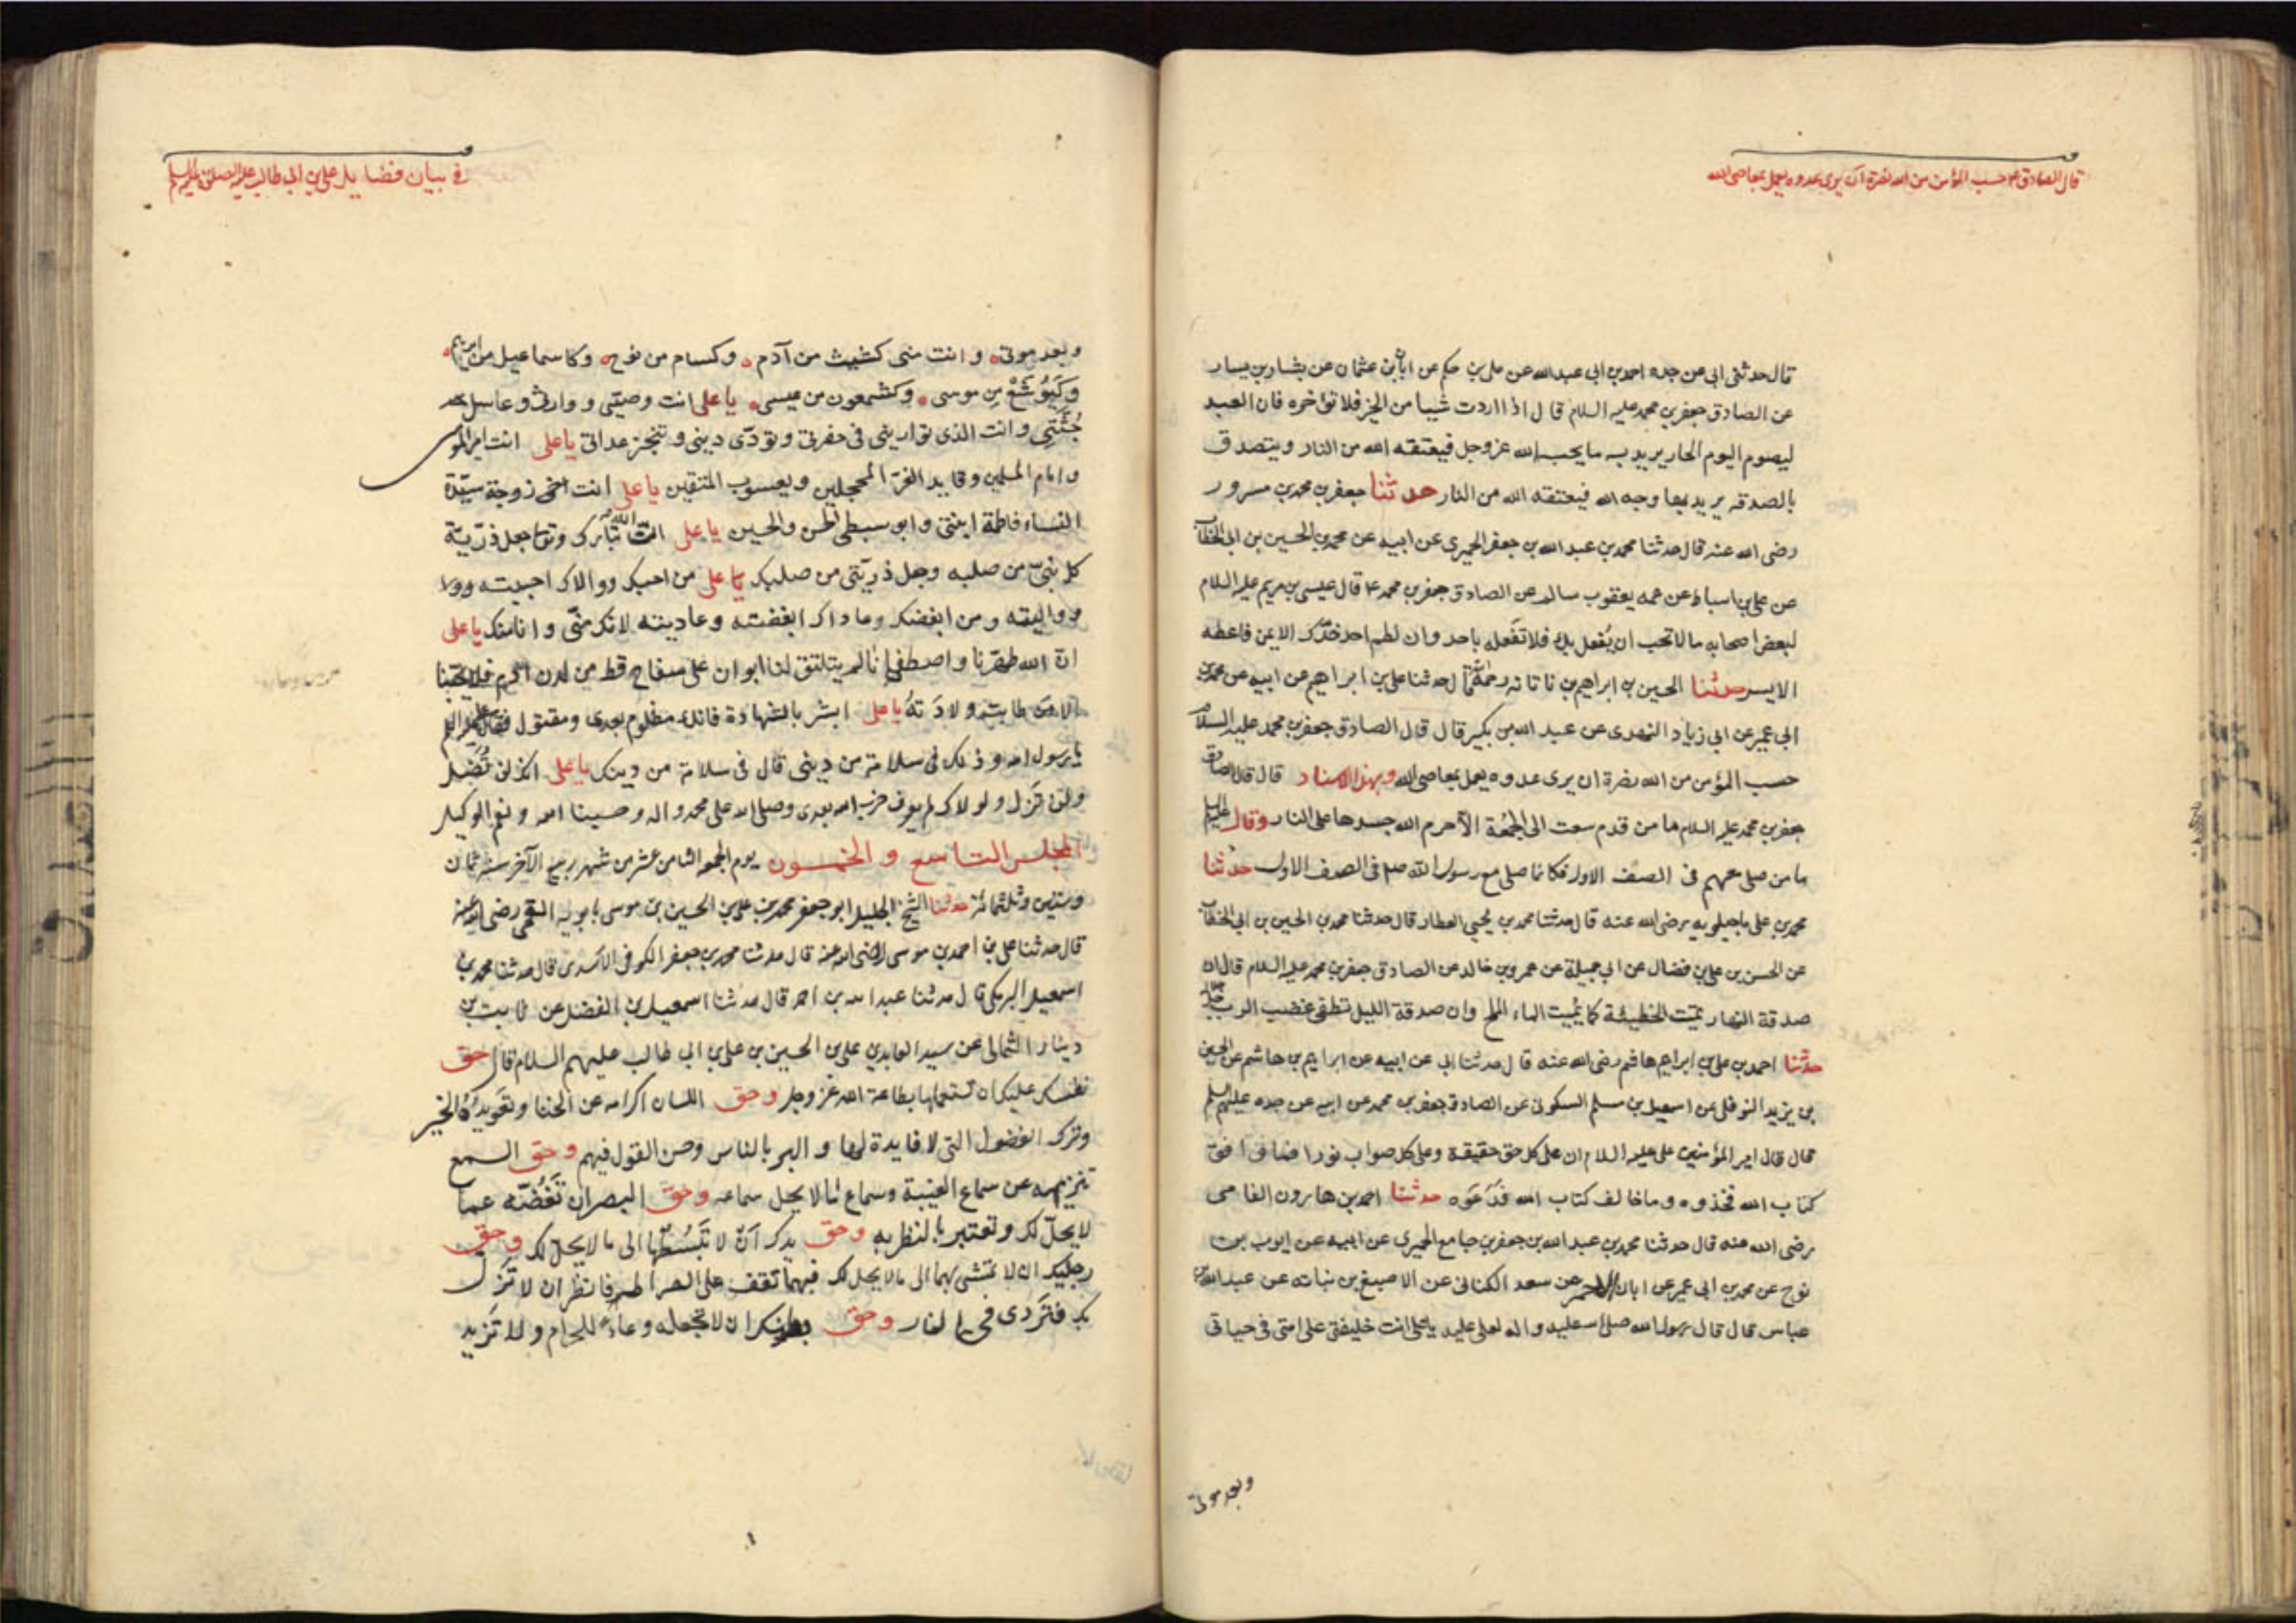 قال الصادق ع حسب المؤمن من الله نصرة ان يرى عدوه يعمل بمعاصى الله
قال حدثنى ابى عن جده احمد بن ابى عبد الله عن على بن حكم عن ابان بن عثمان عن بشار بن يسار
عن الصادق جعفر بن محمد عليه السلام قال اذا اردت شيئا من الخير فلا تؤاخره فان العبد
ليصوم اليوم الحار يريد به ما يحب الله عز وجل فيعتقه الله من النار ويتصدق
بالصدقه يريد بها وجه الله فيعتقه الله من النار حدثنا جعفر بن محمد بن مسرور
رضى الله عنه قال حدثنا محمد بن عبد الله بن جعفر الحميرى عن ابيه عن محمد بن الحسين بن ابى الخطاب
عن على بن اسباط عن عمه يعقوب سالم عن الصادق جعفر بن محمد ع قال عيسى بن مريم عليه السلام
لبعض اصحابه ما لا تحب ان يُفعل بك فلا تفعله باحد وان لطم احد خدّك الايمن فاعطه
الايسر حدثنا الحسين بن ابراهيم بن ناتانه رحمه الله قال حدثنا على بن ابراهيم عن ابيه عن محمد بن
ابى عمير عن ابى زياد النهدى عن عبد الله بن بكير قال قال الصادق جعفر بن محمد عليه السلام
حسب المؤمن من الله نصرة ان يرى عدوه يعمل بمعاصى الله وبهذا الاسناد قال قال الصادق
جعفر بن محمد عليه السلام ما من قدم سعت الى الجمُعة الا حرم الله جسدها على النار وقال عليه السلم
ما من صلى معهم فى الصف الاول فكانما صلى مع رسول الله صلم فى الصف الاول حدثنا
محمد بن على ماجيلويه رضى الله عنه قال حدثنا محمد بن يحيى العطار قال حدثنا محمد بن الحسين بن ابى الخطاب
عن الحسن بن على بن فضال عن ابى جميلة عن عمرو بن خالد عن الصادق جعفر بن محمد عليه السلام قال ان
صدقة النهار تميت الخطيئة كما يميت الماء الملح وان صدقة الليل تطفى غضب الرب
حدثنا احمد بن على بن ابراهيم هاشم رضى الله عنه قال حدثنا ابى عن ابيه عن ابراهيم بن هاشم عن الحسين
بن يزيد النوفلى عن اسمعيل بن مسلم السكونى عن الصادق جعفر بن محمد عن ابيه عن جده عليهم السلم
قال قال امير المؤمنين على عليه السلام ان على كل حق حقيقة وعلى كل صواب نورا فما وافق
كتاب الله فخذوه وما خالف كتاب الله فدَعَوه حدثنا احمد بن هارون الفامى
رضى الله عنه قال حدثنا محمد بن عبد الله بن جعفر بن جامع الحميرى عن ابيه عن ايوب بن
نوح عن محمد بن ابى عمير عن ابان الاحمر عن سعد الكنانى عن الاصبغ بن نباته عن عبد الله بن
عباس قال قال رسول الله صلى الله عليه واله لعلى عليه يا على انت خليفتى على امتى فى حياتى
وبعد موتى
فى بيان فضايل على بن ابى طالب عليه الصلوة والسلم
وبعد موتى وانت منى كشيث من آدم وكسام من نوح وكاسماعيل من ابرهيم
وكَيُوشَعْ مِن موسى وكشمعون من عيسى يا على انت وصيّى ووارثى وغاسل
جُثَّتى وانت الذى توارينى فى حفرتى وتؤدّى دينى وتنجز عداتى يا على انت امير المؤمنين
وامام المسلمين وقايد الغرّ المحجلين ويعسوب المتقين يا على انت زوجة سيّدة
النساء فاطمة ابنتى وابو سبطى الحسن والحسين يا على ان الله تبارك وتعا جعل ذرّيّة
كل نبىّ من صلبه وجعل ذريّتى من صلبك يا على من احبك ووالاك احببته
وواليته ومن ابغضك وعاداك ابغضته وعاديته لانك منّى وانا منك يا على
انّ الله طهّرنا واصطفانا لم يلتق لنا ابوان على سفاح قط من لدن آدم فلا يحبّنا
الا مَن طابت ولادَتهُ يا على ابشر بالشهادة فانك مظلوم بعدى ومقتول فقال على عليه السلم
يا رسول الله وذلك فى سلامة من دينى قال فى سلامة من دينك يا على انك لن تُضَلّ
ولن تزل ولولاك لم يعرف حزب الله بعدى وصلى الله على محمد واله وحسبنا الله ونعم الوكيل
المجلس التاسع والخمسون يوم الجمعه الثامن عشر من شهر ربيع الآخر سنة ثمان
وستين وثلثمائة حدثنا الشيخ الجليل ابو جعفر محمد بن على بن الحسين بن موسى بابويه القمى رضى الله عنه
قال حدثنا على بن احمد بن موسى رضى الله عنه قال حدثنا محمد بن جعفر الكوفى الاسدى قال حدثنا محمد بن
اسمعيل البرمكى قال حدثنا عبد الله بن احمد قال حدثنا اسمعيل بن الفضل عن ثابت بن
دينار الثمالى عن سيد العابدين على بن الحسين بن على بن ابى طالب عليهم السلام قال حق
نفسك عليك ان تستعملها بطاعة الله عز وجل وحق اللسان اكرامه عن الخنا وتعويدُهُ الخير
وترك الفضول التى لا فايدة لها والبر بالناس وحسن القول فيهم وحق السمع
تنزيهه عن سماع الغيبة وسماع ما لا يحل سماعه وحق البصر ان تَغُضّه عما
لا يحلّ لك وتعتبر بالنظر به وحق يدك اَنْ لا تَبْسُطها الى ما لا يحلّ لك وحق
رجليك ان لا تمشى بهما الى ما لا يحل لك فبهما تقف على الصراط فانظر ان لا تَزلّ
بك فتَردى فى النار وحق بطنك ان لا تجعله وعاءً للحرام ولا تَزيد